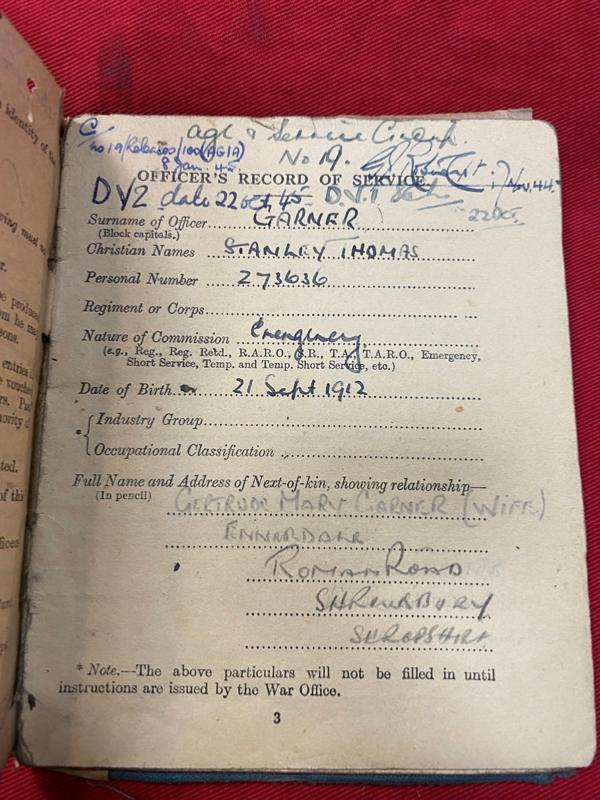 identity of the
Age & Service Group.
C/
No 19.
no 19/Releases/100 (AG1A)
8 Jan. 45
Nov. 44
OFFICER'S RECORD OF SERVICE
DV2 date 22 Oct. 45 D.V.1
22 Oct.
Surname of Officer GARNER
(Block capitals.)
Christian Names STANLEY THOMAS
Personal Number 273636
Regiment or Corps
Nature of Commission Emergency
(e.g., Reg., Reg. Retd., R.A.R.O., S.R., T.A., T.A.R.O., Emergency,
Short Service, Temp. and Temp. Short Service, etc.)
Date of Birth 21 Sept 1912
Industry Group
* Occupational Classification
Full Name and Address of Next-of-kin, showing relationship—
(In pencil) GERTRUDE MARY GARNER (WIFE)
ENNERDALE
ROMAN ROAD
SHREWSBURY
SHROPSHIRE
* Note.—The above particulars will not be filled in until
instructions are issued by the War Office.
3